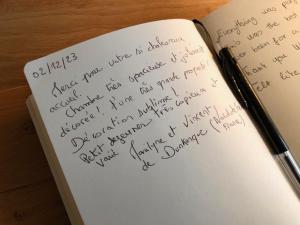 02/12/23
Merci pour votre si chaleureux
accueil.
Chambre très spacieuse et joliment
décorée! d'une très grande propreté!
Décoration sublime!
Petit déjeuner très copieux et
varié
et Vincent
de Dunkerque
Everything was
was the best
ever been for a
Thank you
felt like